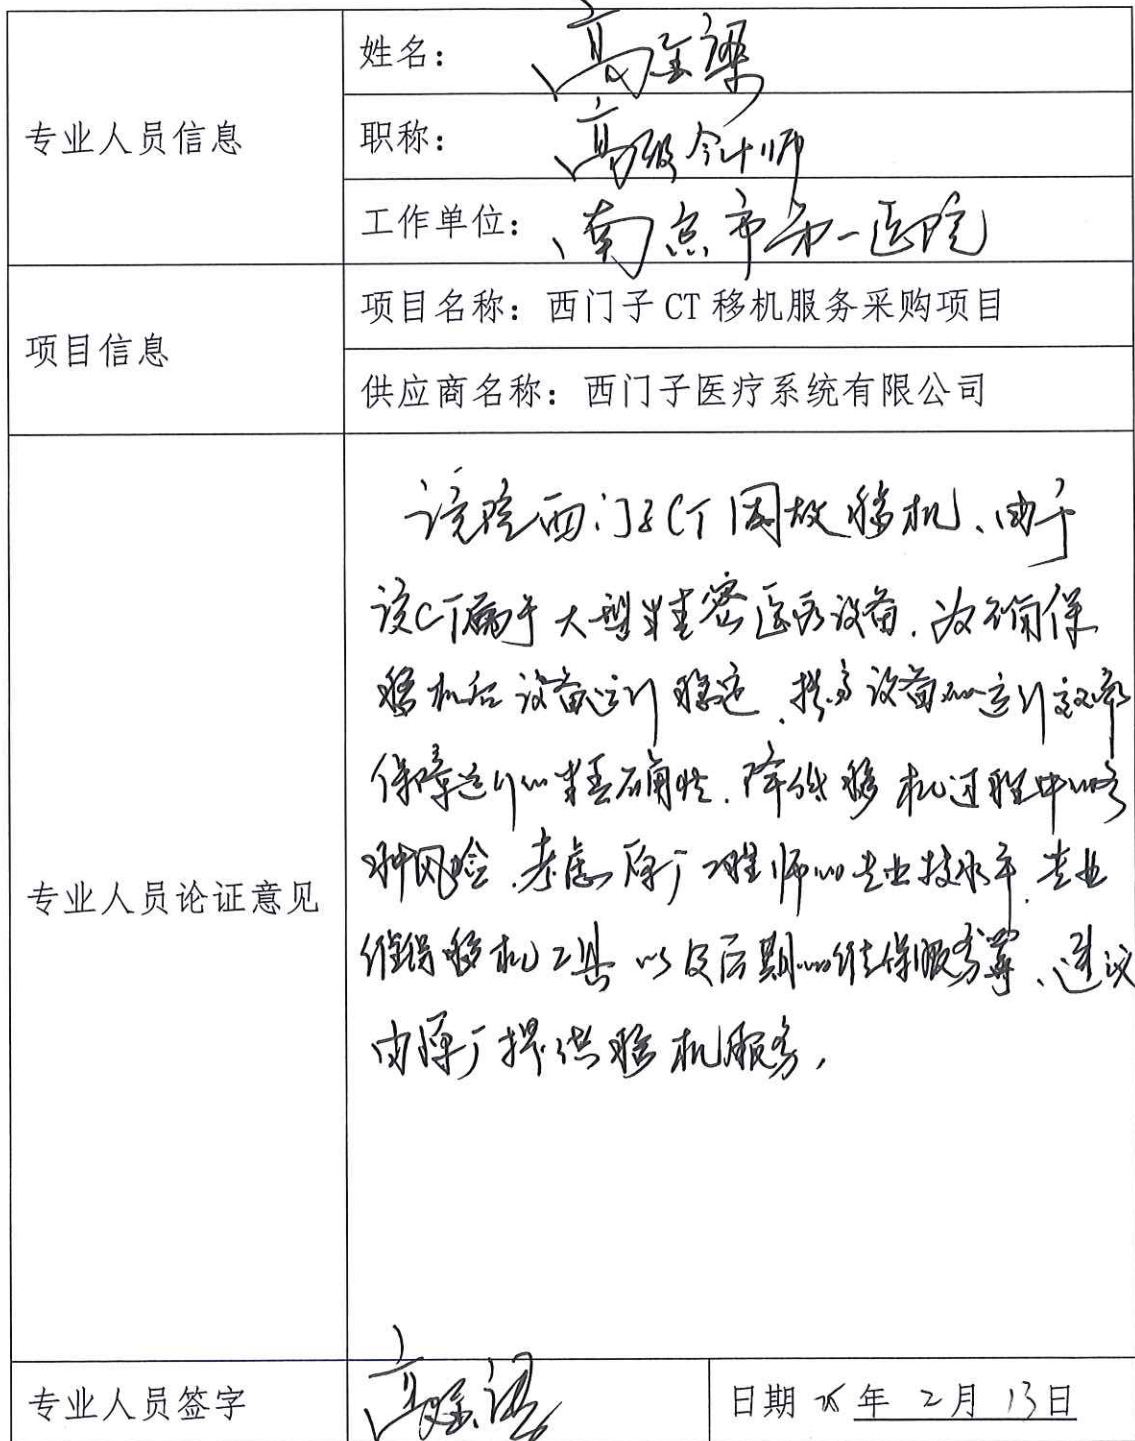 专业人员信息
姓名：高金梁
职称：高级会计师
工作单位：南京市第一医院
项目信息
项目名称：西门子 CT 移机服务采购项目
供应商名称：西门子医疗系统有限公司
专业人员论证意见
该院西门子CT因故移机、由于
该CT属于大型精密医疗设备，为确保
移机后设备运行稳定，提高设备的运行效率
保障运行的精准确性，降低移机过程中的各
种风险，考虑原厂工程师的专业技术水平，专业
移机工具以及后期的维保服务等、建议
由原厂提供移机服务，
专业人员签字
日期 25年 2月 13日